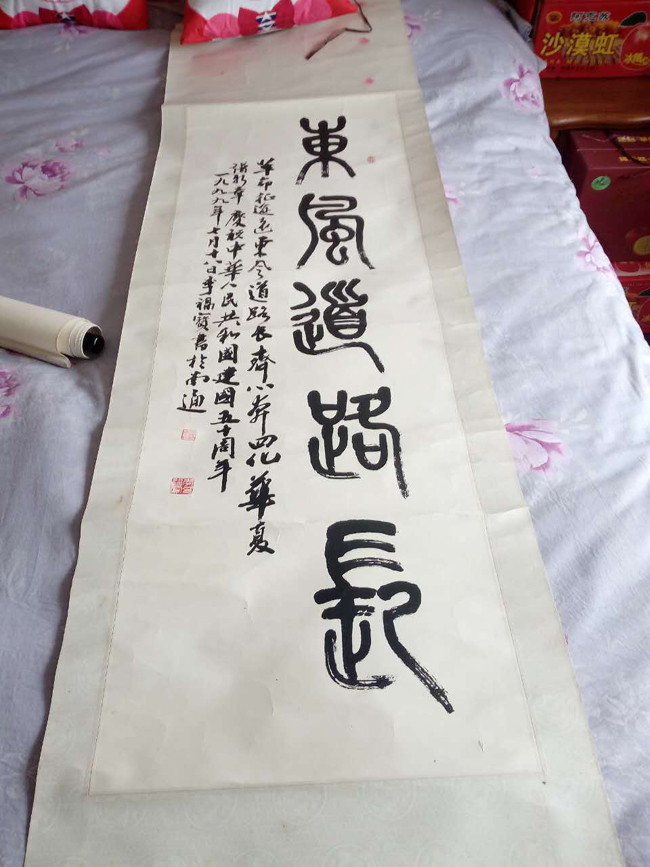 東風道路長
革命征途遠東風道路長齊心奔四化華夏
譜新章慶祝中華人民共和國建國五十周年
一九九九年七月十八日李福寶書於南通
沙漠虹